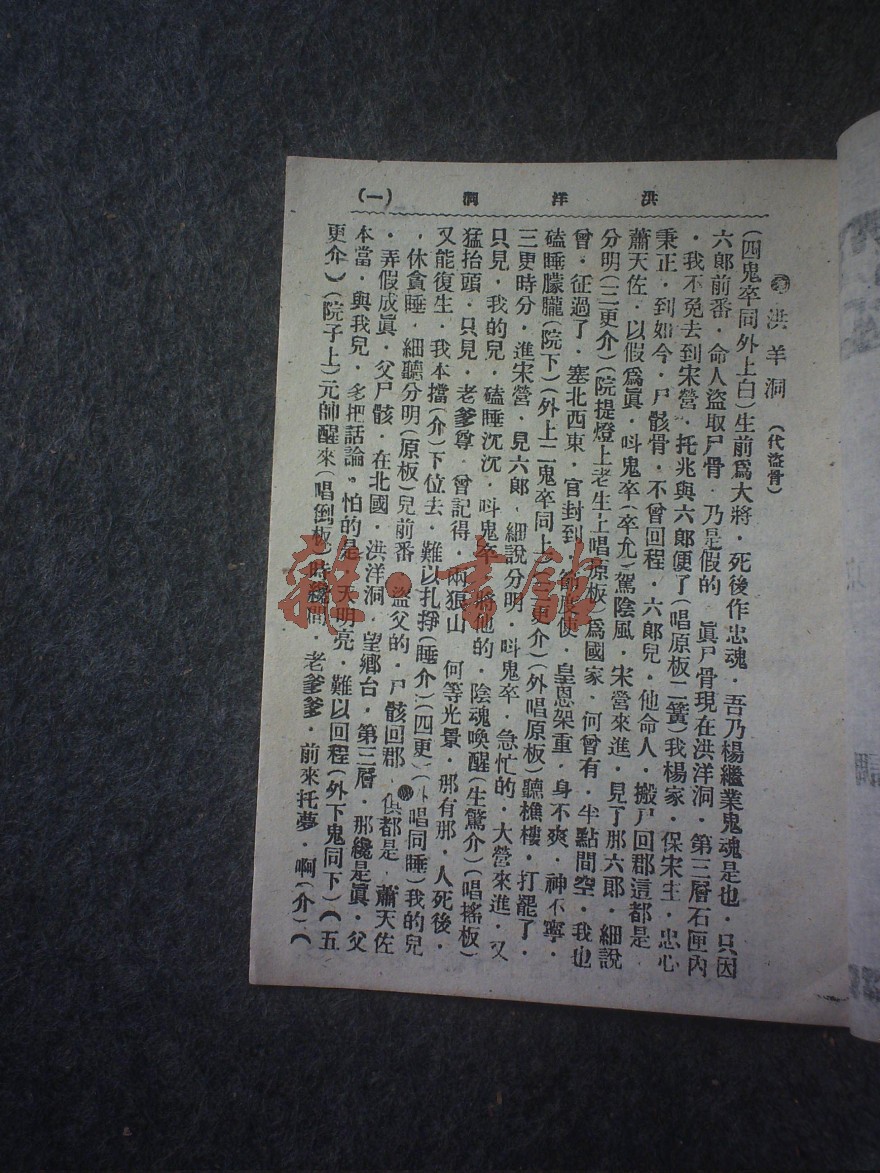 洪洋洞 (一)
洪羊洞(代盜骨)
(四鬼卒同外上白)生前爲大將．死後作忠魂．吾乃楊繼業鬼魂是也．只因
六郎前番．命人盜取尸骨．乃是假的．眞尸骨現在洪洋洞．第三層石匣內
．我不免去到宋營．托兆與六郎便了(唱原板二簧)我楊家．保宋主．忠心
秉正．到如今．尸骸骨．不曾回程．六郎兒．他命人．搬尸回郡這都是
蕭天佐．以假爲眞．呌鬼卒(卒允)駕陰風．宋營來進．見了那六郎．細說
分明(二更介)(院提燈上老生上唱原板)爲國家．何曾有．半點間空．我也
曾．征過了．塞北西東．官封到．節度使．皇恩架重．身不爽．神不寧．
磕睡朦朧(院下)(外上二鬼卒同上)(三更介)(外唱原板)聽樵樓．打罷了．
三更時分．進宋營．見六郎．細說分明．呌鬼卒．急忙的．大營來進．又
只見．我的兒．磕睡沉沉．呌鬼卒．將他的．陰魂喚醒(生驚介)(唱搖板)
猛抬頭．只見．老爹尊．曾記得．兩狼山．何等光景．那有那．人死後．
又能復生．我本擋(介)下位去．難以扎掙(睡介)(四更)(外唱同睡)我的兒
．休貪睡．細聽分明(原板)兒前番．盜父的．尸骸回郡．俱都是．蕭天佐
．弄假成眞．父尸骸．在北國．洪洋洞．望鄉台．第三層．那纔是眞．父
本當．與我兒．多把話論．怕的是．天明亮．難以回程(外下鬼同下)(五
更介)(院子上)元帥醒來(唱倒板)時纔間．老爹爹．前來托夢．啊(介)(
雜·書館